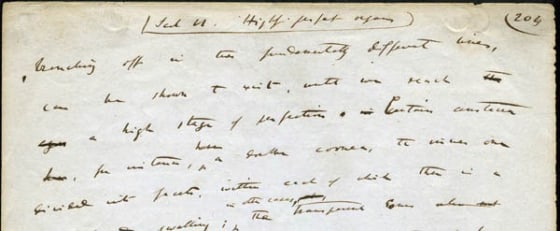 Sect VI. Highly perfect organs (204
branching off in two fundamentally different lines,
can be shown to exist, until we reach the
a high stage of perfection. in Certain crustacea
for instance, there is a double cornea, the inner one
divided into facets, within each of which there is a
in other cases,
swelling; the transparent cones